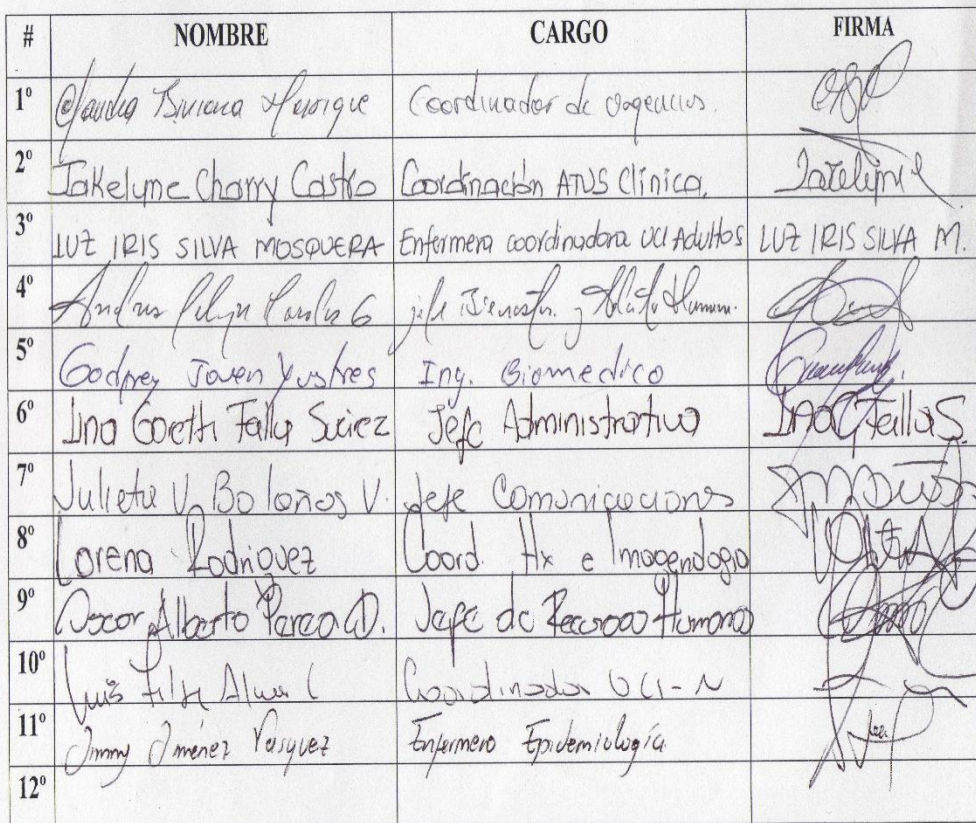 # NOMBRE CARGO FIRMA
1º Claudia Biviana Coordinador de urgencias.
2º Jakelyne Charry Castro Coordinación ATUS Clínica. Jakelyne
3º LUZ IRIS SILVA MOSQUERA Enfermera coordinadora UCI Adultos LUZ IRIS SILVA M.
4º Andres Felipe G jefe Bienestar y
5º Godfrey Joven Yustres Ing. Biomedico
6º Lina Goretti Falla Suárez Jefe Administrativa Lina G Falla S.
7º Julieta V. Bolaños V. Jefe Comunicaciones
8º Lorena Rodriguez Coord. Hx e Imagenologia
9º Oscar Alberto Perea D. Jefe de Recurso Humano
10º Luis Coordinador UCI-N
11º Jimmy Jiménez Vasquez Enfermero Epidemiología
12º